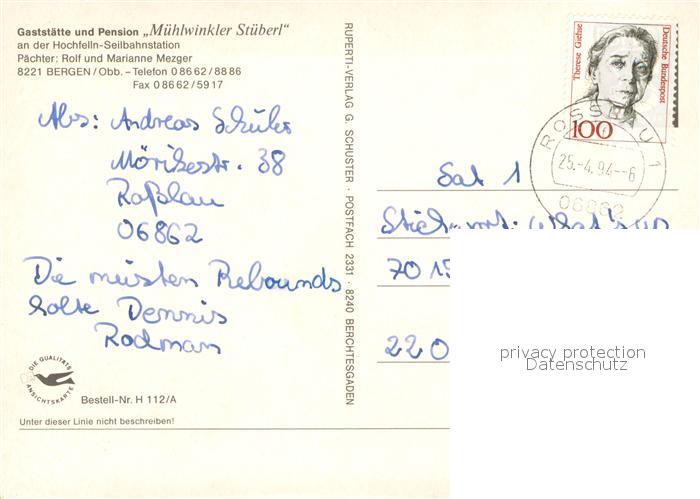 Gaststätte und Pension „Mühlwinkler Stüberl"
an der Hochfelln-Seilbahnstation
Pächter: Rolf und Marianne Mezger
8221 BERGEN / Obb. – Telefon 0 86 62 / 88 86
Fax 0 86 62 / 59 17
Abs: Andreas Schüler
Mörikestr. 38
Roßlau
06862
Die meisten Rebounds
holte Dennis
Rodman
DIE QUALITÄTS
ANSICHTSKARTE
Bestell-Nr. H 112/A
Unter dieser Linie nicht beschreiben!
RUPERTI-VERLAG G. SCHUSTER · POSTFACH 2331 · 8240 BERCHTESGADEN
Therese Giehse
Deutsche Bundespost
100
ROSSLAU 1
25.-4.94--6
06862
Sat 1
Stichwort: What's up
70 15
22 0
privacy protection
Datenschutz